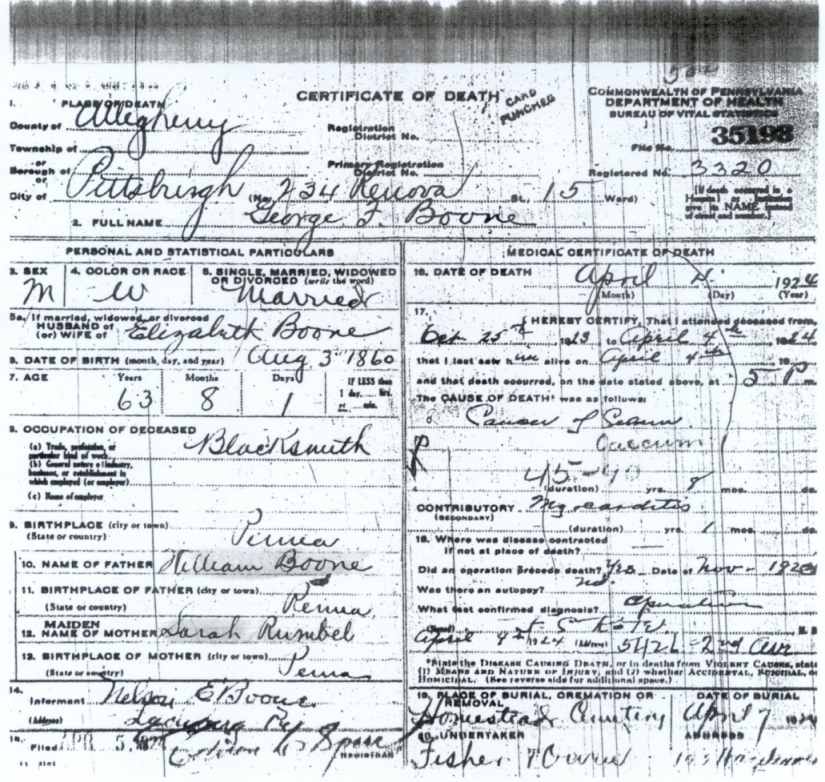 CERTIFICATE OF DEATH
CARD PUNCHED
COMMONWEALTH OF PENNSYLVANIA
DEPARTMENT OF HEALTH
BUREAU OF VITAL STATISTICS
1. PLACE OF DEATH
County of Allegheny
Registration District No.
File No. 35198
Township of
or
Borough of
Primary Registration District No.
Registered No. 3320
or
City of Pittsburgh (No. 234 Renova St., 15 Ward)
[If death occurred in a Hospital or Institution give its NAME instead of street and number.]
2. FULL NAME George F. Boone
PERSONAL AND STATISTICAL PARTICULARS
3. SEX M
4. COLOR OR RACE W
5. SINGLE, MARRIED, WIDOWED OR DIVORCED (write the word) Married
5a. If married, widowed, or divorced
HUSBAND of
(or) WIFE of Elizabeth Boone
6. DATE OF BIRTH (month, day, and year) Aug 3 1860
7. AGE Years Months Days If LESS than
63 8 1 1 day, .... hrs. or .... min.
8. OCCUPATION OF DECEASED
(a) Trade, profession, or particular kind of work Blacksmith
(b) General nature of industry, business, or establishment in which employed (or employer)
(c) Name of employer
9. BIRTHPLACE (city or town)
(State or country) Penna
10. NAME OF FATHER William Boone
11. BIRTHPLACE OF FATHER (city or town)
(State or country) Penna
12. MAIDEN NAME OF MOTHER Sarah Rumbel
13. BIRTHPLACE OF MOTHER (city or town)
(State or country) Penna
14.
Informant Nelson E Boone
(Address)
Filed APR 5
REGISTRAR
MEDICAL CERTIFICATE OF DEATH
16. DATE OF DEATH April 4 1924
(Month) (Day) (Year)
17. I HEREBY CERTIFY, That I attended deceased from
Oct 25th 1923 to April 4th 1924
that I last saw him alive on April 4th 19
and that death occurred, on the date stated above, at 5 P m.
The CAUSE OF DEATH* was as follows:
Cancer of
Caecum
(duration) yrs. 8 mos. ds.
CONTRIBUTORY Myocarditis
(SECONDARY)
(duration) yrs. 1 mos. ds.
18. Where was disease contracted
if not at place of death?
Did an operation precede death? Yes Date of Nov 1923
Was there an autopsy? no
What test confirmed diagnosis? Operation
(Signed) M. D.
April 1924 (Address) 5426 - 2nd Ave
*State the DISEASE CAUSING DEATH, or in deaths from VIOLENT CAUSES, state
(1) MEANS AND NATURE OF INJURY, and (2) whether ACCIDENTAL, SUICIDAL, or
HOMICIDAL. (See reverse side for additional space.)
19. PLACE OF BURIAL, CREMATION OR REMOVAL
Homestead Cemetery
DATE OF BURIAL
April 7 1924
20. UNDERTAKER
ADDRESS
Fisher